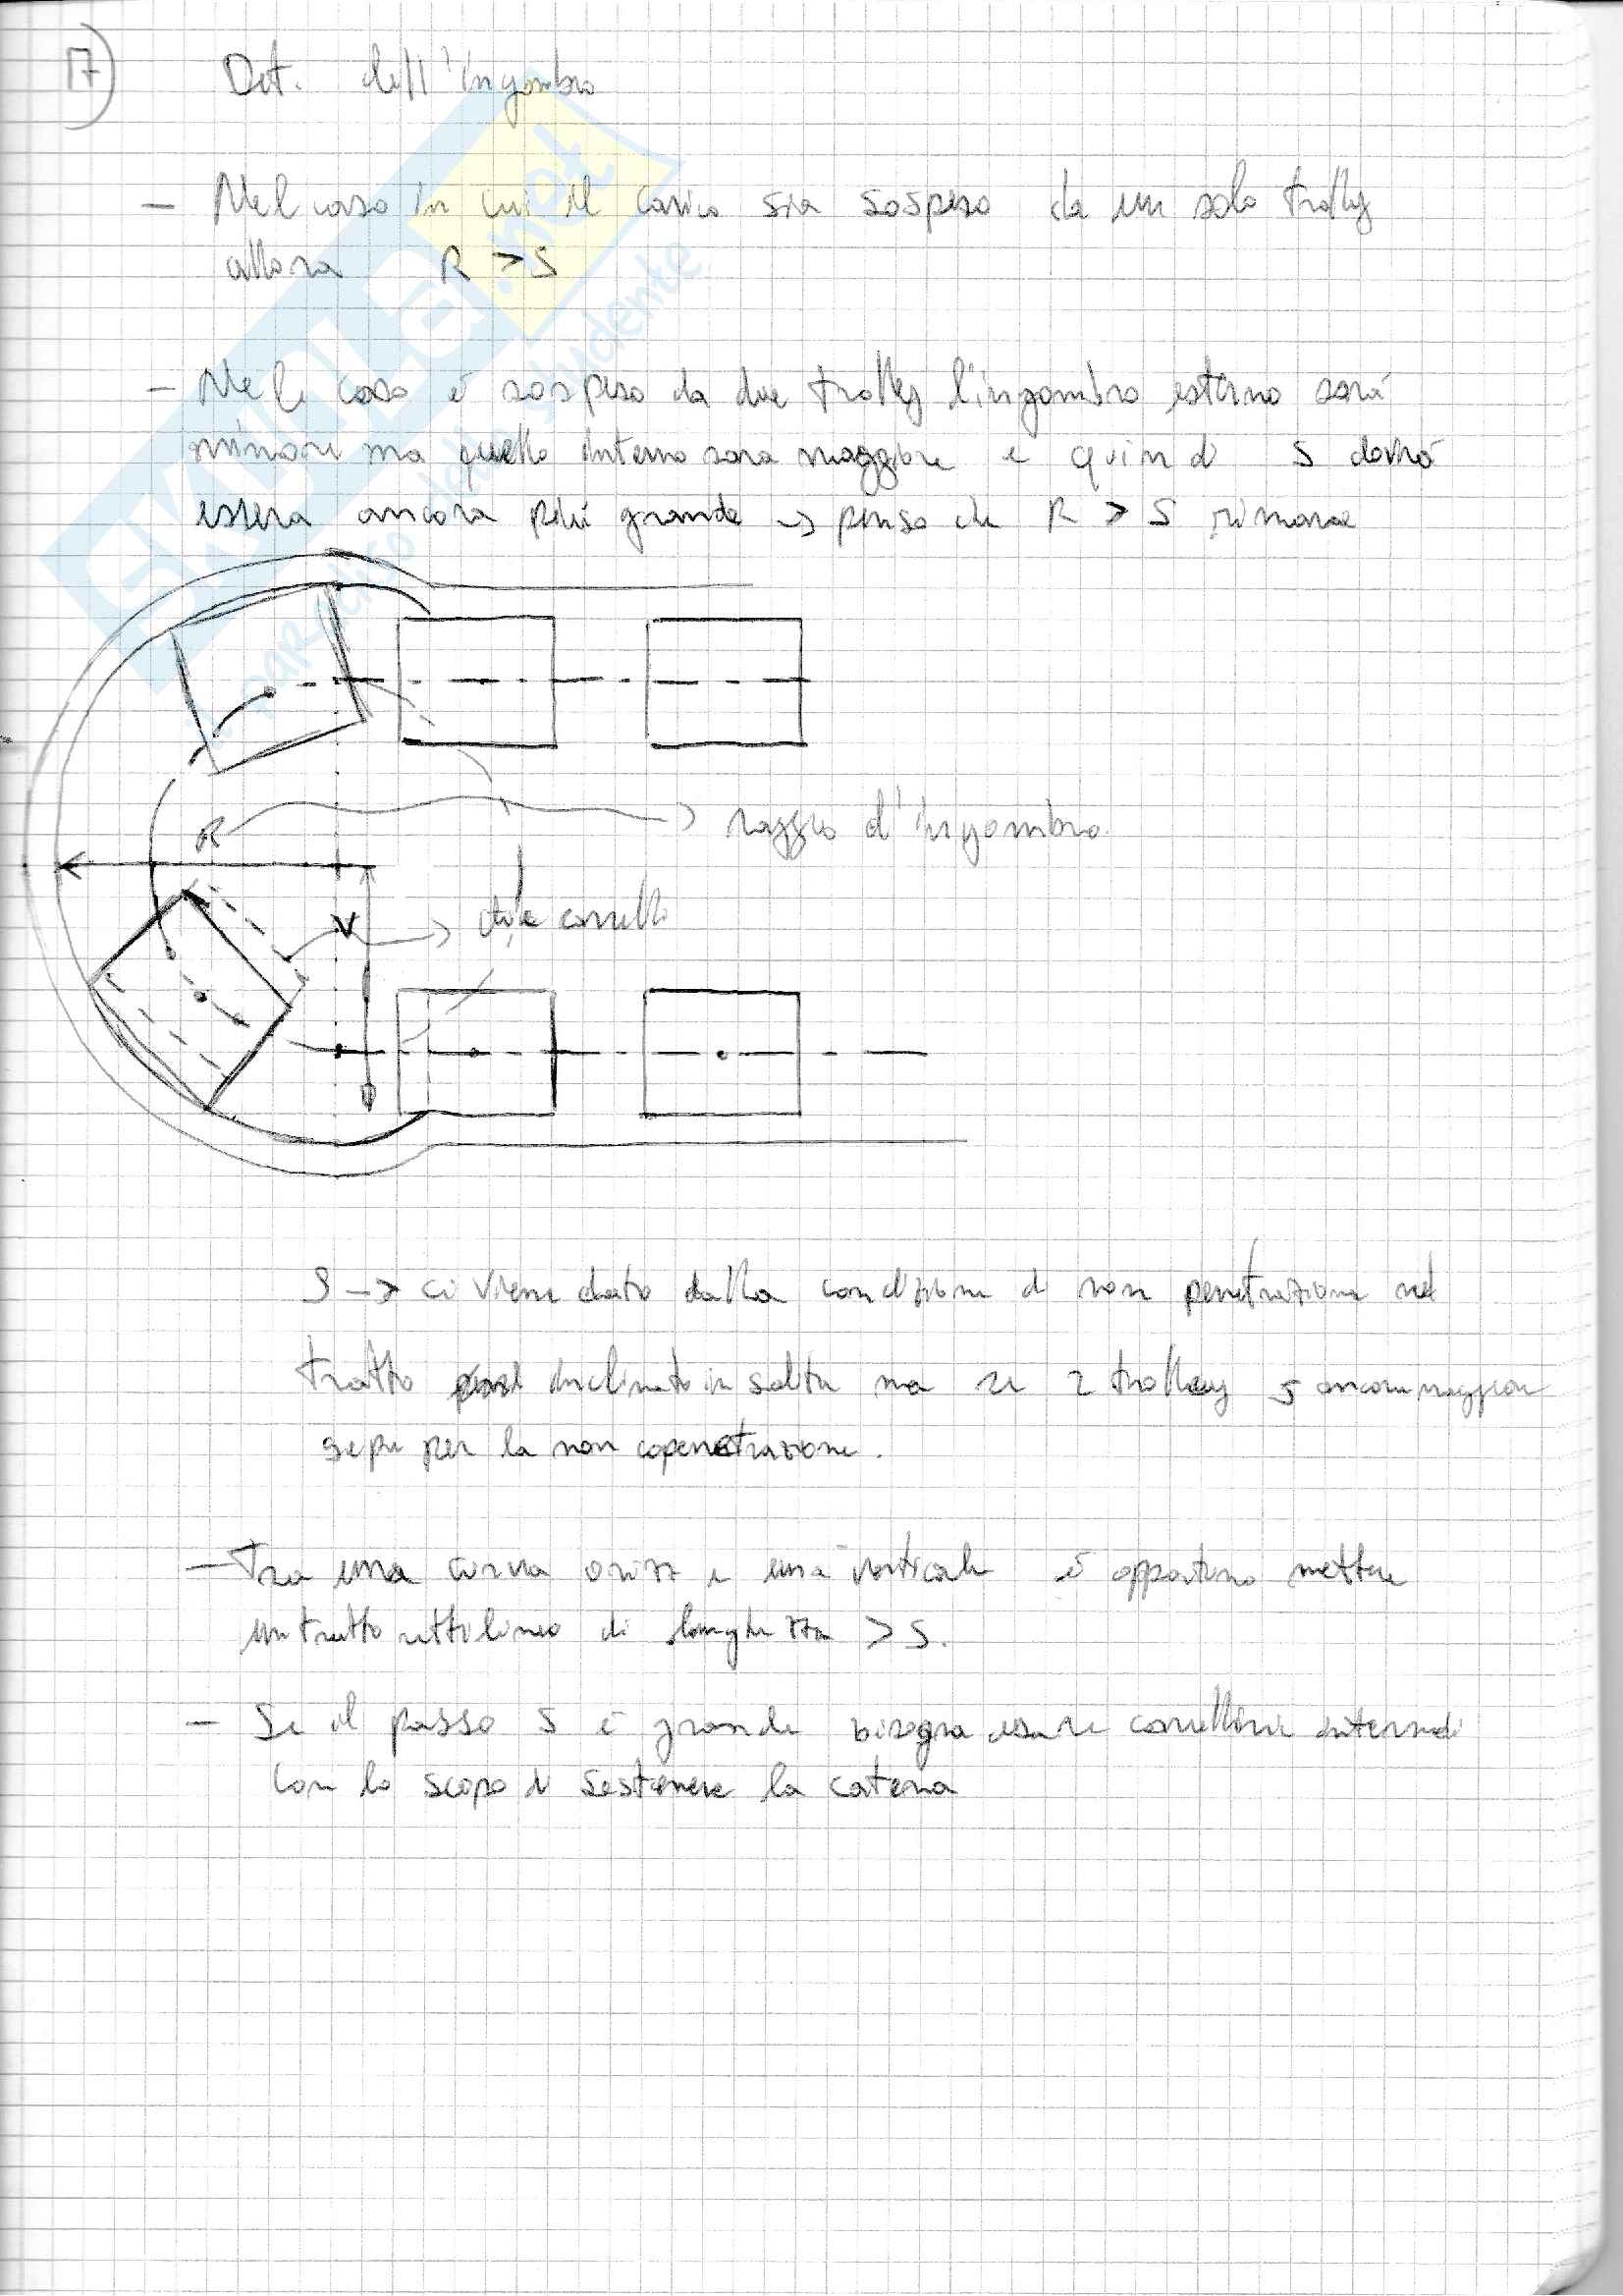 17)
Det. dell'ingombro
- Nel caso in cui il carico sia sospeso da un solo trolley
allora R > S
- Nel caso è sospeso da due trolley l'ingombro esterno sarà
minore ma quello interno sara maggiore e quindi S dovrà
essera ancora più grande → penso che R > S rimane
R → raggio d'ingombro
V
→ carrelli
S → ci viene dato dalla condizione di non penetrazione nel
tratto inclinato in salita ma se 2 trolley S ancora maggiore
sepre per la non copenetrazione.
- Tra una curva orizz e una verticale è opportuno mettere
un tratto rettilineo di lunghezza > S.
- Se il passo S è grande bisogna usare carrellini intermedi
con lo scopo di sostenere la catena
SKUOLA.net